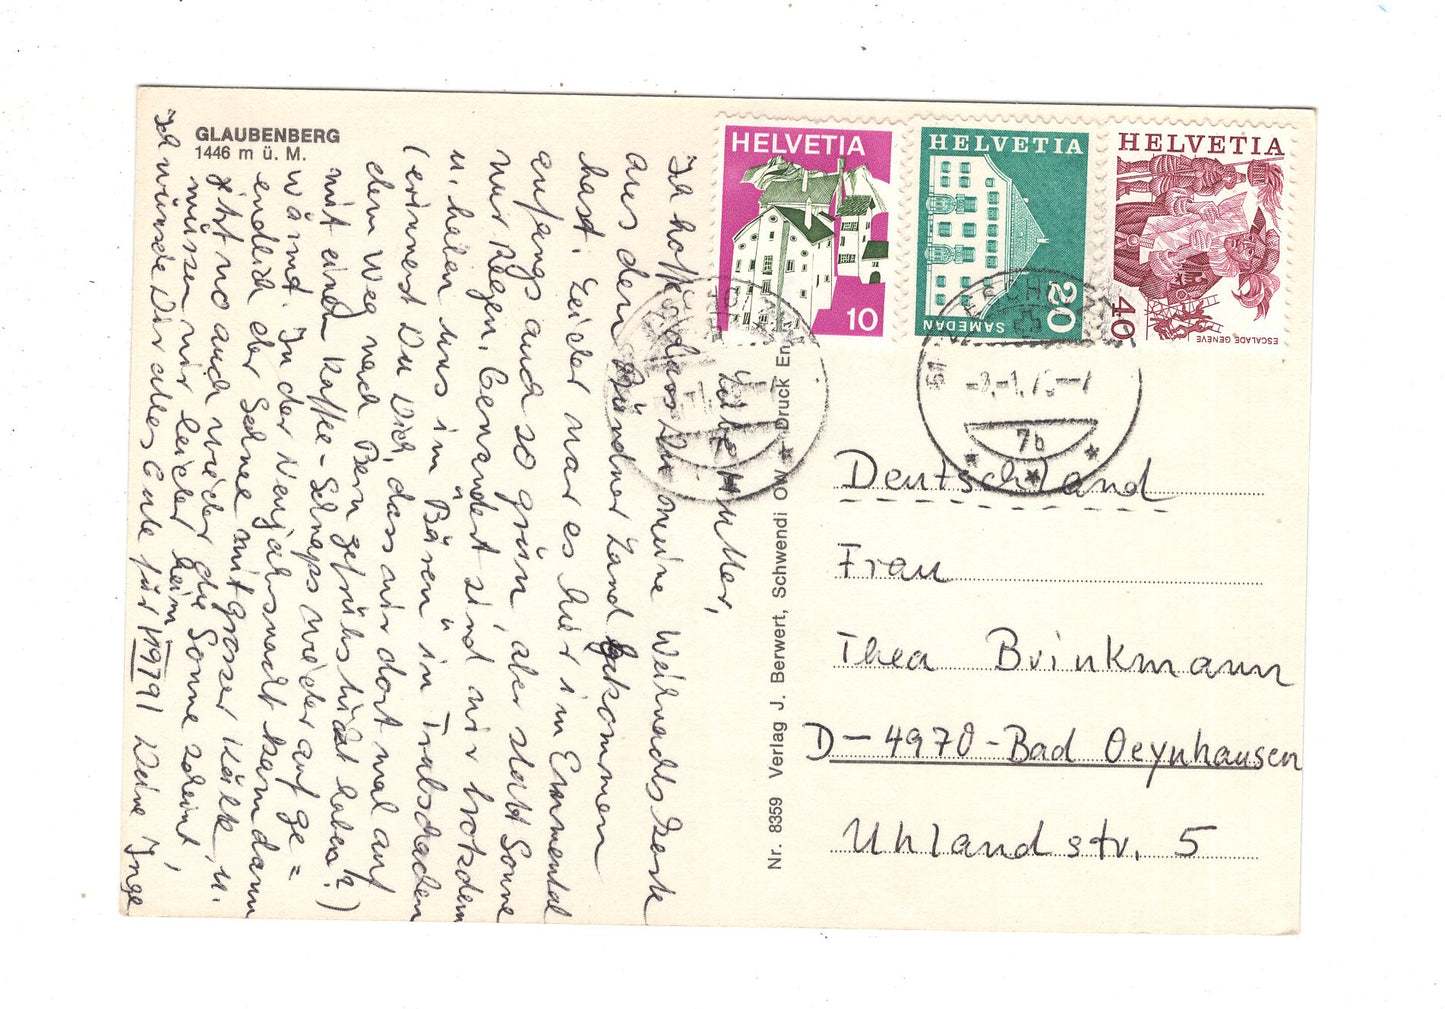 GLAUBENBERG
1446 m ü. M.
Liebe Mutter,
Ich hoffe, dass Du meine Weihnachtskarte
aus dem Bündner Land bekommen
hast. Leider war es hier im Emmental
anfangs auch so grün, aber statt Sonne
nur Regen. Gewandert sind wir trotzdem
u. haben uns im Bären in Trubschachen
(erinnerst Du Dich, dass wir dort mal auf
dem Weg nach Bern gefrühstückt haben?)
mit einem Kaffee-Schnaps wieder aufge=
wärmt. In der Neujahrsnacht kam dann
endlich der Schnee mit grosser Kälte, u.
jetzt wo auch wieder die Sonne scheint,
müssen wir leider heim.
Ich wünsche Dir alles Gute für 1979! Deine Inge
Nr. 8359 Verlag J. Berwert, Schwendi OW — Druck En
HELVETIA
10
HELVETIA
SAMEDAN
20
HELVETIA
40
ESCALADE GENÈVE
7b
Deutschland
Frau
Thea Brinkmann
D-4970-Bad Oeynhausen
Uhlandstr. 5